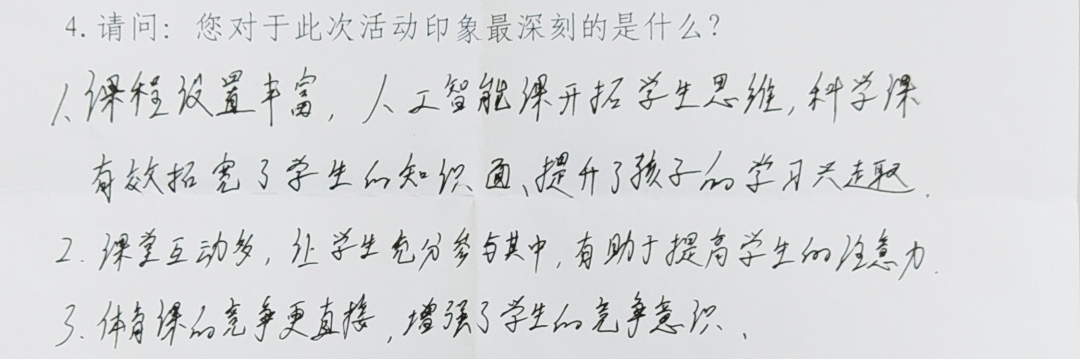 4. 请问：您对于此次活动印象最深刻的是什么？
1、课程设置丰富，人工智能课开拓学生思维，科学课
有效拓宽了学生的知识面、提升了孩子的学习兴趣．
2．课堂互动多，让学生充分参与其中，有助于提高学生的注意力．
3．体育课的竞争更直接，增强了学生的竞争意识、